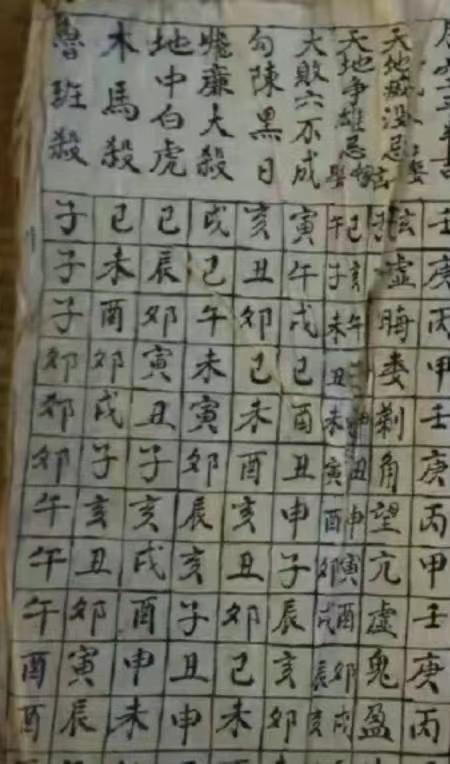 壬庚丙甲壬庚丙甲壬庚丙
天地滅沒忌
弦虛晦娄剃角望亢虛鬼盈
天地争雄忌
午巳 子亥 未午 丑 未 寅丑 酉申 卯寅 戌酉 辰卯 亥戌
大敗六不成
寅午戌巳酉丑申子辰亥卯
勾陳黑日
亥丑卯巳未酉亥丑卯巳未
飛廉大殺
戌巳午未寅卯辰亥子丑申
地中白虎
巳辰卯寅丑子亥戌酉申未
木馬殺
巳未酉卯戌子亥丑卯寅辰
魯班殺
子子子卯卯卯午午午酉酉